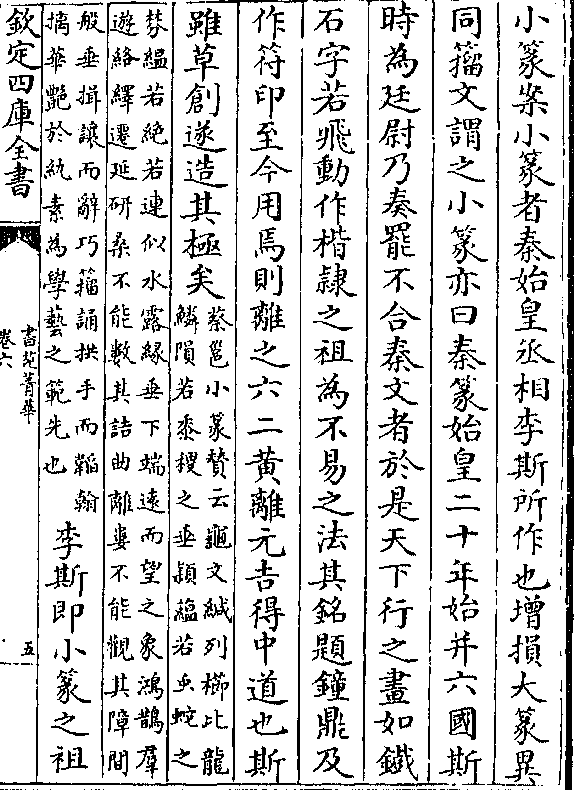 小篆案小篆者秦始皇丞相李斯所作也增損大篆異
同籀文謂之小篆亦曰秦篆始皇二十年始并六國斯
時為廷尉乃奏罷不合秦文者於是天下行之畫如鐵
石字若飛動作楷隷之祖為不易之法其銘題鐘鼎及
作符印至今用焉則離之六二黄離元吉得中道也斯
雖草創遂造其極矣
蔡邕小篆贊云龜文緘列櫛比龍
鱗隕若黍稷之垂頴蘊若䖝蛇之
棼緼若絶若連似水露縁垂下端逺而望之象鴻鵠羣
遊絡繹遷延研桑不能數其詰曲離婁不能觀其障間
般垂揖讓而辭巧籀誦拱手而韜翰
摛華艷於紈素為學藝之範先也
李斯即小篆之祖
欽定四庫全書
書苑菁華
卷六
五